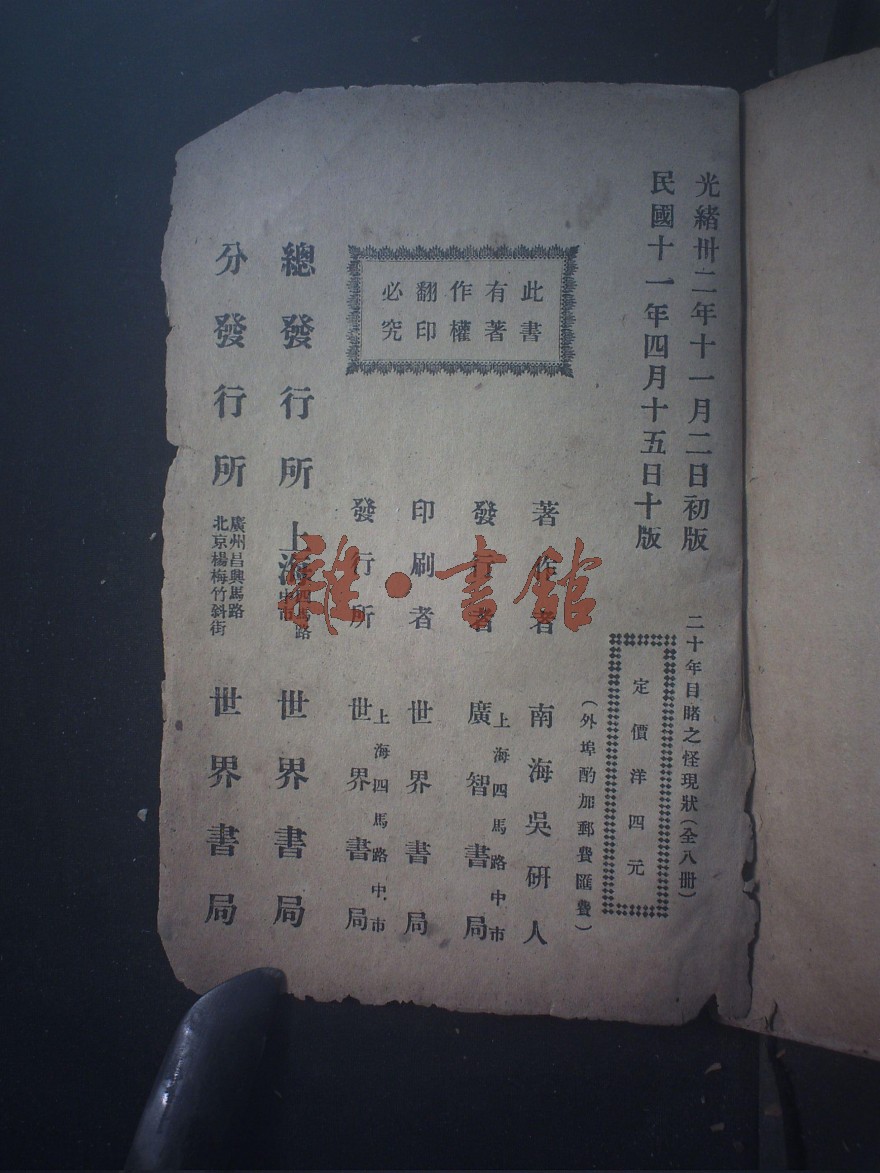 光緒卅二年十一月二日初版
民國十一年四月十五日十版
二十年目睹之怪現狀(全八冊)
定價洋四元
(外埠酌加郵費匯費)
此書
有著
作權
翻印
必究
著作者 南海吳研人
發行者 上海四馬路中市 廣智書局
印刷者 世界書局
發行所 上海四馬路中市 世界書局
總發行所 上海四馬路中市 世界書局
分發行所 廣州昌興馬路 北京楊梅竹斜街 世界書局
雜·書館